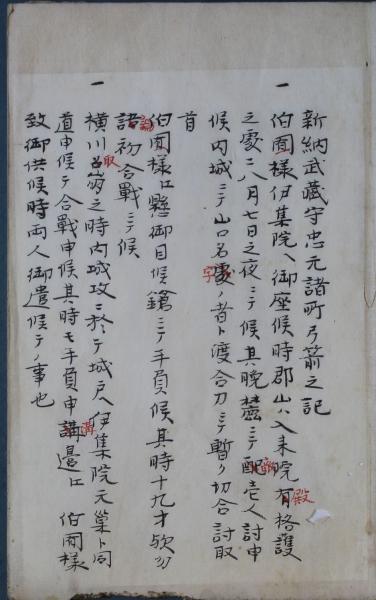 新納武蔵守忠元諸所弓箭之記
一
伯囿様伊集院ヘ御座候時郡山ヘ入来院有格護
殿
之處ニ八月七日之夜ニテ候其晩ニテ配壱人討申
候内城ニテ山口名處ノ者ト渡合刀ニテ暫ク切合討取
字
首
伯囿様江懸御目候鑓ニテ手負候其時十九才欤
諸初合戦ニテ候
一
横川名崩之時内城攻ニ於テ城戸ヘ伊集院元巣ト同
取
道申候テ合戦申候其時モ手負申講邉江 伯囿様
溝
致御供候時両人御遣候テノ事也